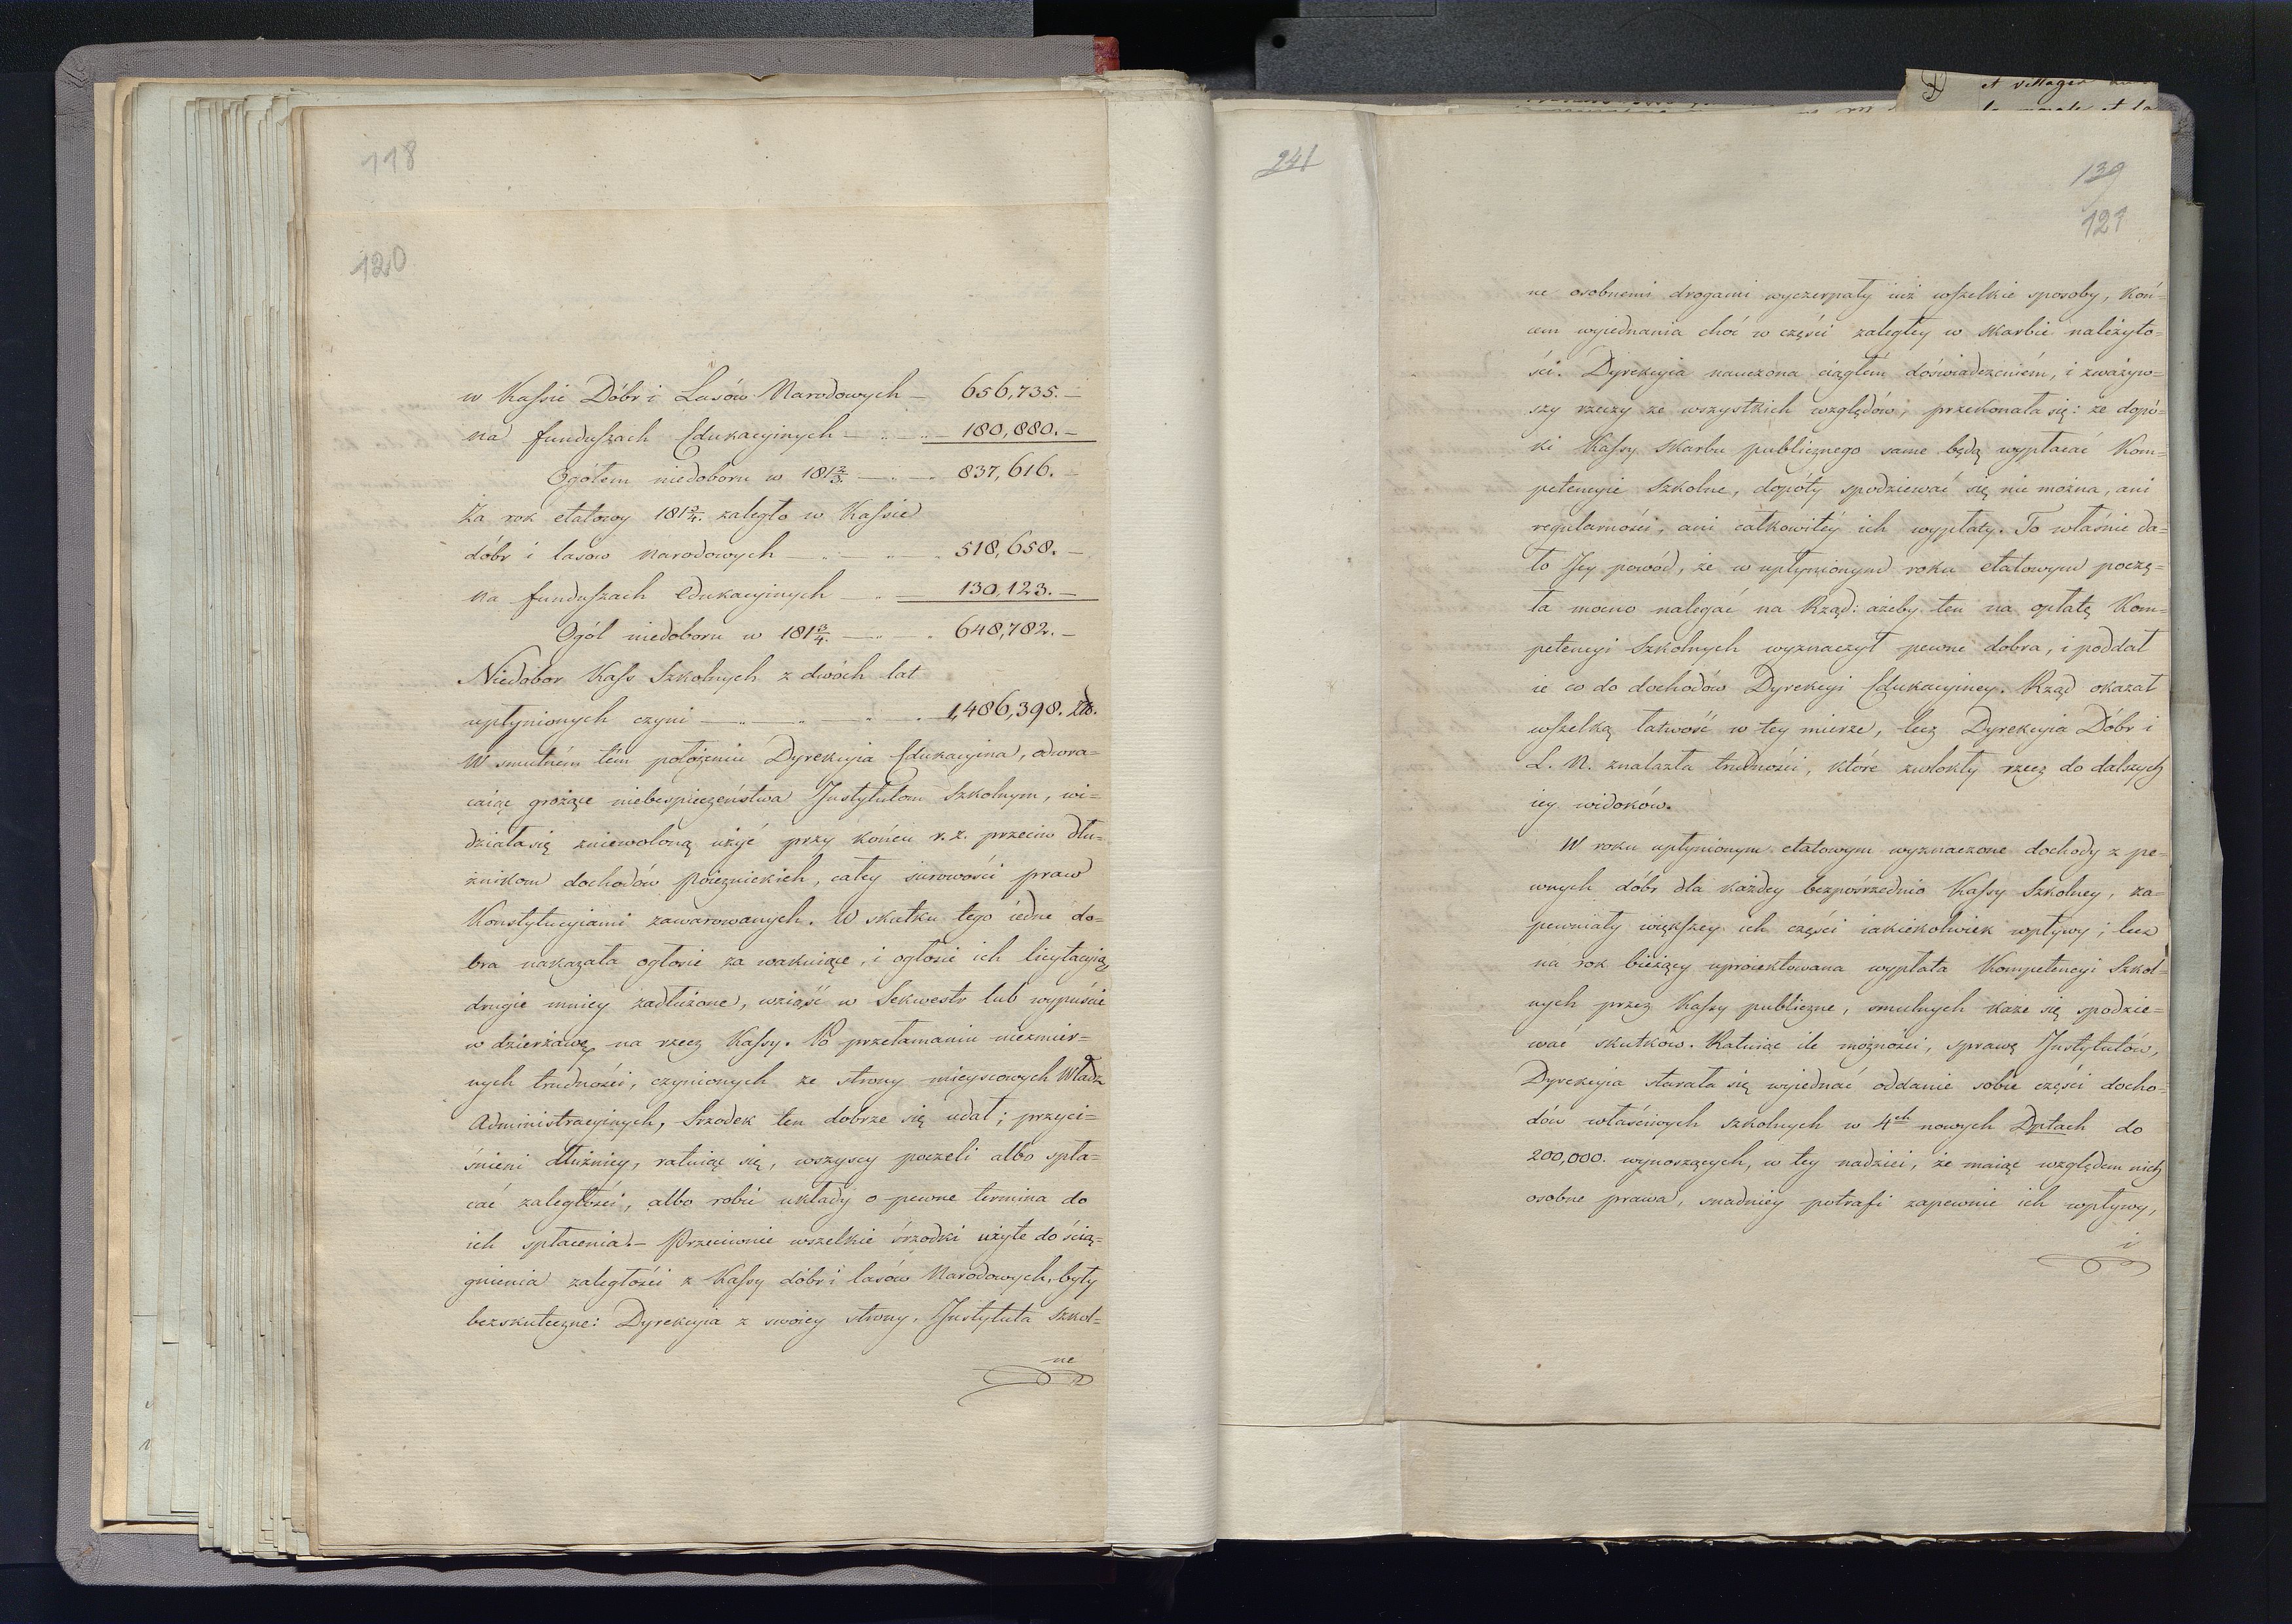 118
120
w Kassie Dóbr i Lasów Narodowych — 656,735. —
na funduszach Edukacyinych — „ — „ — 180,880. —
Ogółem niedoboru w 181 2/3. — „ — „ 837,616. —
Za rok etatowy 181 3/4. zaległo w Kassie
dóbr i lasów narodowych — „ — „ — „ 518,658. —
na funduszach edukacyinych — „ — 130,123. —
Ogół niedoboru w 181 3/4. — „ — „ 648,782. —
Niedobor Kass Szkolnych z dwóch lat
upłynionych czyni — „ — „ — „ — 1,486,398. Złł.
W smutném tém położeniu Dyrekcyia Edukacyina, odwra=
caiąc grożące niebespieczeństwa Instytutom Szkolnym, wi=
działa się zniewoloną użyć przy końcu r. z. przeciw dłu=
żnikom dochodów Poiezuickich, całey surowości praw
Konstytucyiami zawarowanych. W skutku tego iedne do=
bra nakazała ogłosić za wakuiące, i ogłosić ich licytacyią,
drugie mniey zadłużone, wziąść w Sekwestr lub wypuście
w dzierżawę na rzecz Kassy. Po przełamaniu niezmier=
nych trudności, czynionych ze strony mieyscowych Władz
Administracyinych, Srzodek ten dobrze się udał; przyci=
śnieni dłużnicy, ratuiąc się, wszyscy poczeli albo spła=
cać zaległości, albo robić układy o pewne termina do
ich spłacenia. — Przeciwnie wszelkie śrzodki użyte do ścią=
gnienia zaległości z Kassy dóbr i lasów Narodowych, były
bezskuteczne: Dyrekcyia z swoiey strony, Instytuta Szkol=
ne
241
139
121
ne osobnemi drogami wyczerpały iuż wszelkie sposoby, koń=
cem wyiednania choć w części zaległey w skarbie należyto=
ści. Dyrekcyia nauczona ciągłém doświadczeniém, i zważyw=
szy rzeczy ze wszystkich względów, przekonała się: że dopó=
ki Kassy skarbu publicznego same będą wypłacać Kom=
petencyie Szkolne, dopóty spodziewać się nie można, ani
regularności, ani całkowitéy ich wypłaty. To właśnie da=
ło Jey powód, że w upłynionym roku etatowym poczę=
ła mocno nalegać na Rząd: ażeby ten na opłatę Kom=
petencyi Szkolnych wyznaczył pewne dobra, i poddał
ie co do dochodów Dyrekcyi Edukacyiney. Rząd okazał
wszelką łatwość w tey mierze, lecz Dyrekcyia Dóbr i
L. N. znalazła trudności, które zwlokły rzecz do dalszych
iey widoków.
W roku upłynionym etatowym wyznaczone dochody z pe=
wnych dóbr dla każdey bezpośrzednio Kassy Szkolney, za=
pewniały większey ich części iakiekolwiek wpływy; lecz
na rok bieżący uproiektowana wypłata Kompetencyi Szkol=
nych przez Kassy publiczne, smutnych każe się spodzie=
wać skutków. Ratuiąc ile możności, sprawę Instytutów,
Dyrekcyia starała się wyiednać oddanie sobie części docho=
dów właściwych szkolnych w 4ch nowych Dptach do
200,000. wynoszących, w tey nadziei, że maiąc względem nich
osobne prawa, snadniey potrafi zapewnić ich wpływy,
i